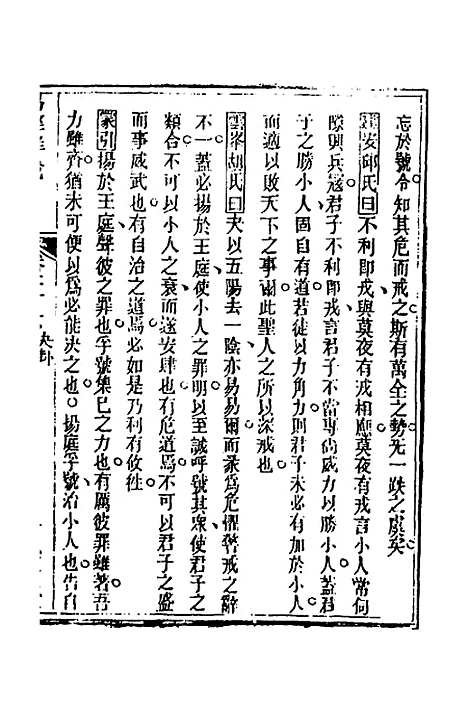 忘於號令知其危而戒之斯有萬全之勢无一跌之虞矣
建安邱氏曰不利即戎與莫夜有戎相應莫夜有戎言小人常伺
隙興兵寇君子不利即戎言君子不當專尚威力以勝小人蓋君
子之勝小人固自有道若徒以力角力則君子未必有加於小人
而適以敗天下之事爾此聖人之所以深戒也
雲峯胡氏曰夬以五陽去一陰亦易易爾而彖爲危懼警戒之辭
不一蓋必揚於王庭使小人之罪明以至誠呼號其衆使君子之
類合不可以小人之衰而遂安肆也有危道焉不可以君子之盛
而事威武也有自治之道焉必如是乃利有攸徃
蒙引揚於王庭聲彼之罪也孚號集巳之力也有厲彼罪雖著吾
力雖齊猶未可便以爲必能决之也揚庭孚號治小人也告自
夬卦